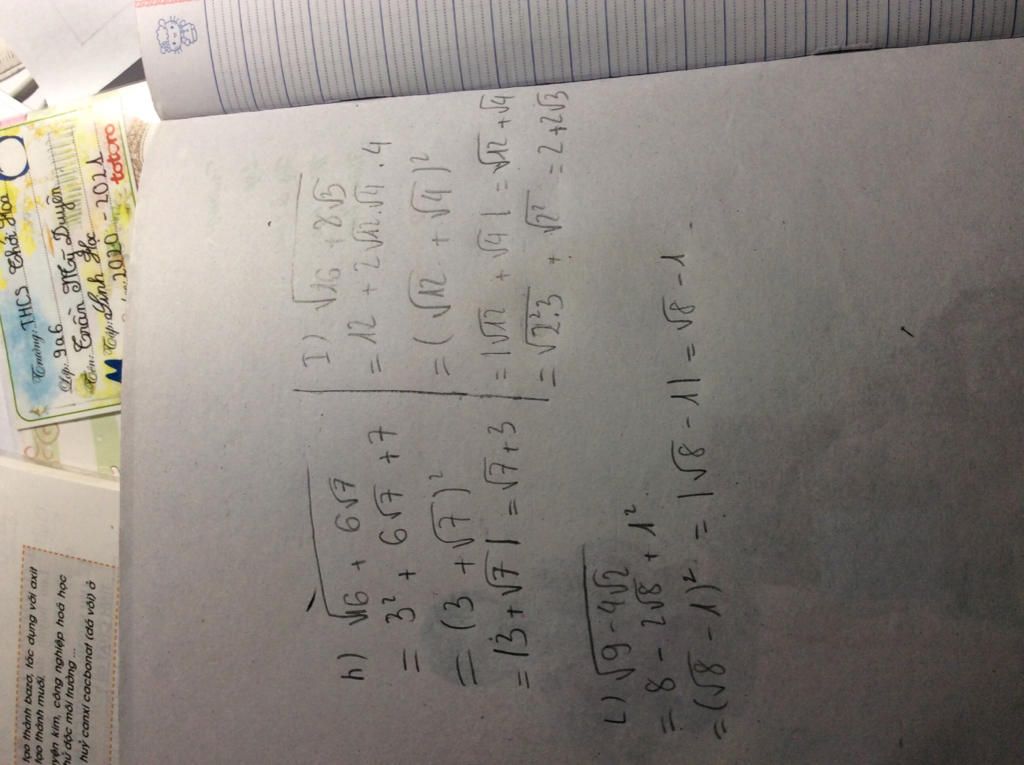 Trường: THCS Thới Hòa
Lớp: 9a6
Tên: Trần Mỹ Duyên
Tập: Sinh Học
2020 - 2021
totoro
tạo thành bazơ, tác dụng với axit
tạo thành muối.
công nghiệp hoá học
độc môi trường ...
huỷ canxi cacbonat (đá vôi) ở
h) √16 + 6√7
= 3² + 6√7 + 7
= (3 + √7)²
= |3 + √7| = √7 + 3
I) √16 + 8√3
= 12 + 2√12.√4 . 4
= (√12 + √4)²
= |√12 + √4| = √12 + √4
= √2².3 + √2² = 2 + 2√3
L) √9 - 4√2
= 8 - 2√8 + 1²
= (√8 - 1)² = |√8 - 1| = √8 - 1